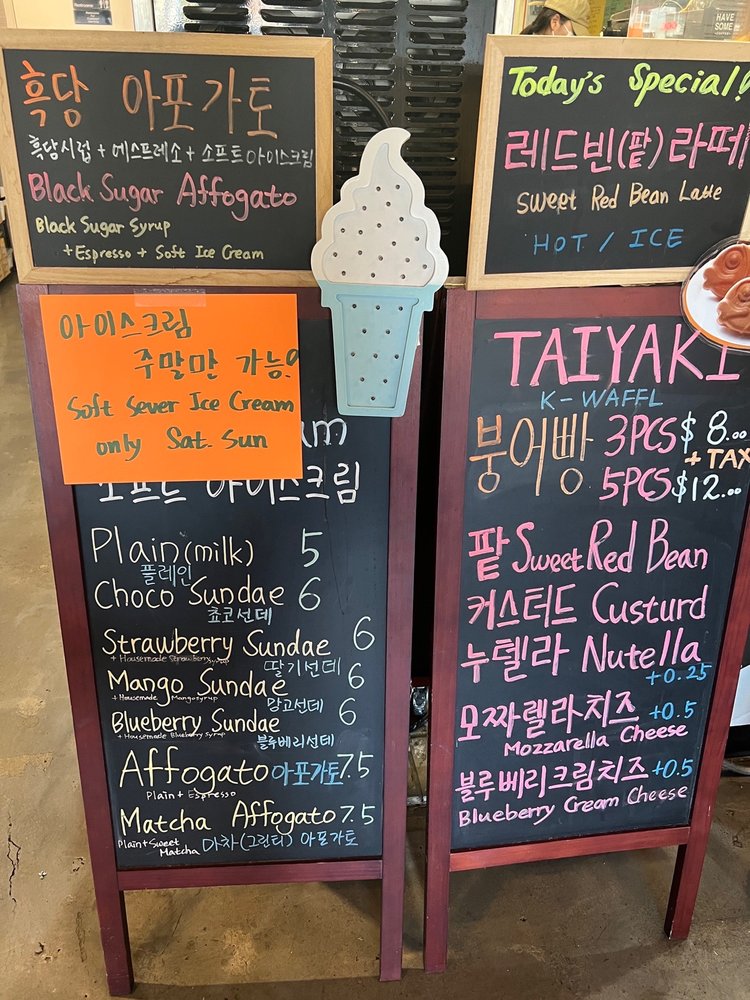 흑당 아포가토
흑당시럽 + 에스프레소 + 소프트 아이스크림
Black Sugar Affogato
Black Sugar Syrup
+ Espresso + Soft Ice Cream
Today's Special!
레드빈(팥) 라떼
Sweet Red Bean Latte
HOT / ICE
HAVE
SOME
아이스크림
주말만 가능!
Soft Sever Ice Cream
only Sat. Sun
소프트 아이스크림
Plain (milk) 5
플레인
Choco Sundae 6
쵸코선데
Strawberry Sundae 6
+ Housemade Strawberry syrup
딸기선데
Mango Sundae 6
+ Housemade Mango syrup
망고선데
Blueberry Sundae 6
+ Housemade Blueberry syrup
블루베리선데
Affogato 아포가토 7.5
Plain + Espresso
Matcha Affogato 7.5
Plain + Sweet
Matcha 마차(그린티) 아포가토
TAIYAKI
K-WAFFL
붕어빵 3PCS $8.00
+ TAX
5PCS $12.00
팥 Sweet Red Bean
커스터드 Custurd
누텔라 Nutella
+0.25
모짜렐라치즈 +0.5
Mozzarella Cheese
블루베리크림치즈 +0.5
Blueberry Cream Cheese